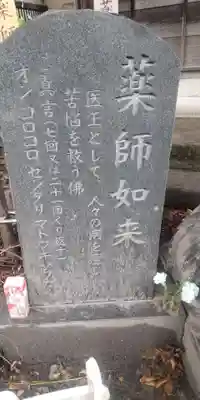 薬師如来
医王として、人々の病を
苦悩を救う佛
真言(七回又は二十一回くり返す)
オンコロコロセンダリマトウギソワカ